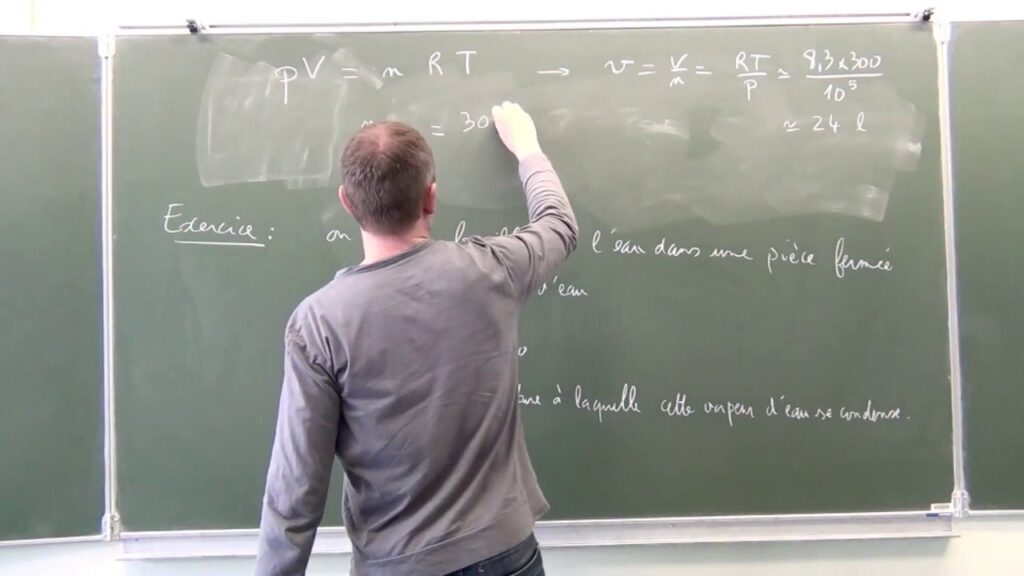 pV = n R T → v = V/n = RT/P ≃ 8,3×300/10⁵
= 30
≃ 24 l
Exercice : on l'eau dans une pièce fermée
d'eau
à laquelle cette vapeur d'eau se condense.